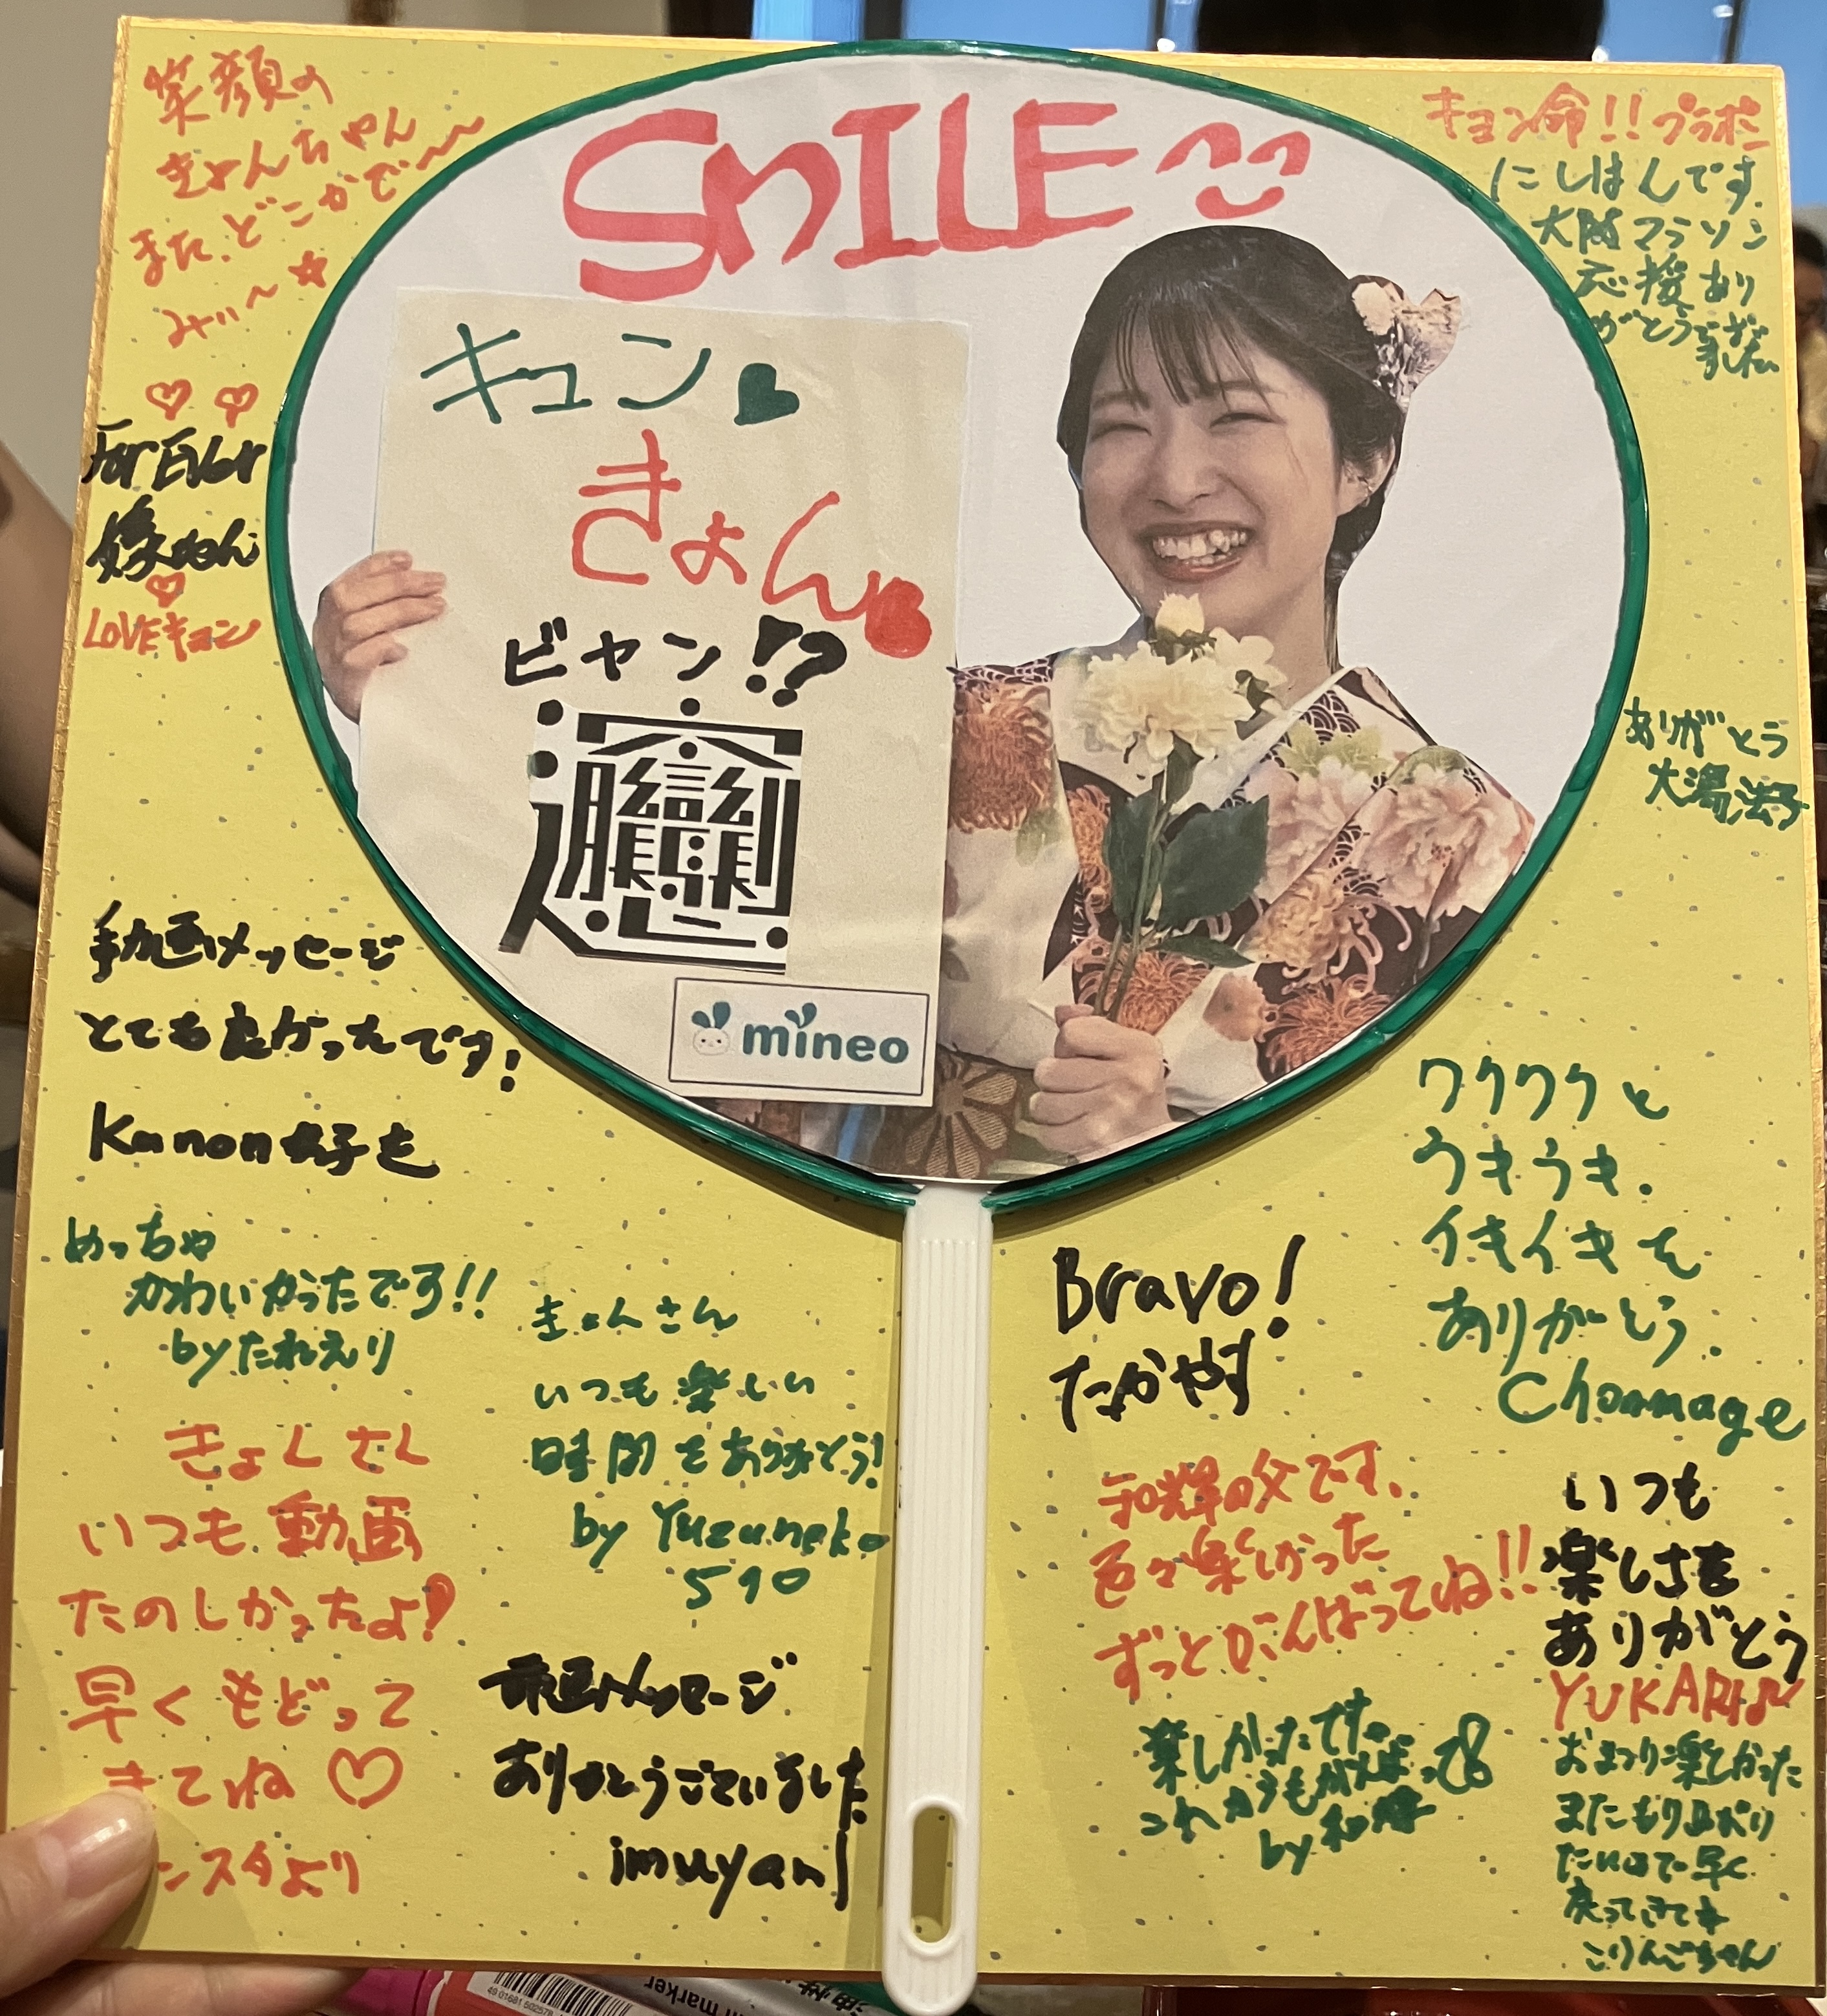 SMILE
キュン
きょん
ビャン!?
mineo
笑顔の
きょんちゃん
また、どこかで〜〜
みぃ〜☆
For Ever
嫁ちゃん
LOVEキョン
動画メッセージ
とても良かったです!
Kanon
めっちゃ
かわいかったです!!
byたれえり
きょんさん
いつも動画
たのしかったよ!
早くもどって
きてね♡
ンスタより
きょんさん
いつも楽しい
時間をありがとう!
by Yuzuneko
510
メッセージ
ありがとうございました
imuyan
キョン命!!プラポン
にしはんです。
大阪マラソン
応援あり
がとうござい
ました。
ありがとう
大潟法子
ワクワクと
うきうき.
イキイキを
ありがとう.
Chonmage
Bravo!
たかやす
和輝の父です、
色々楽しかった
ずっとがんばってね!!
楽しかったです。
これからもがんばって
by和輝
いつも
楽しさを
ありがとう
YUKARI♪
おまつり楽しかった
またもり上がり
たいので早く
戻ってきて
こりんごちゃん